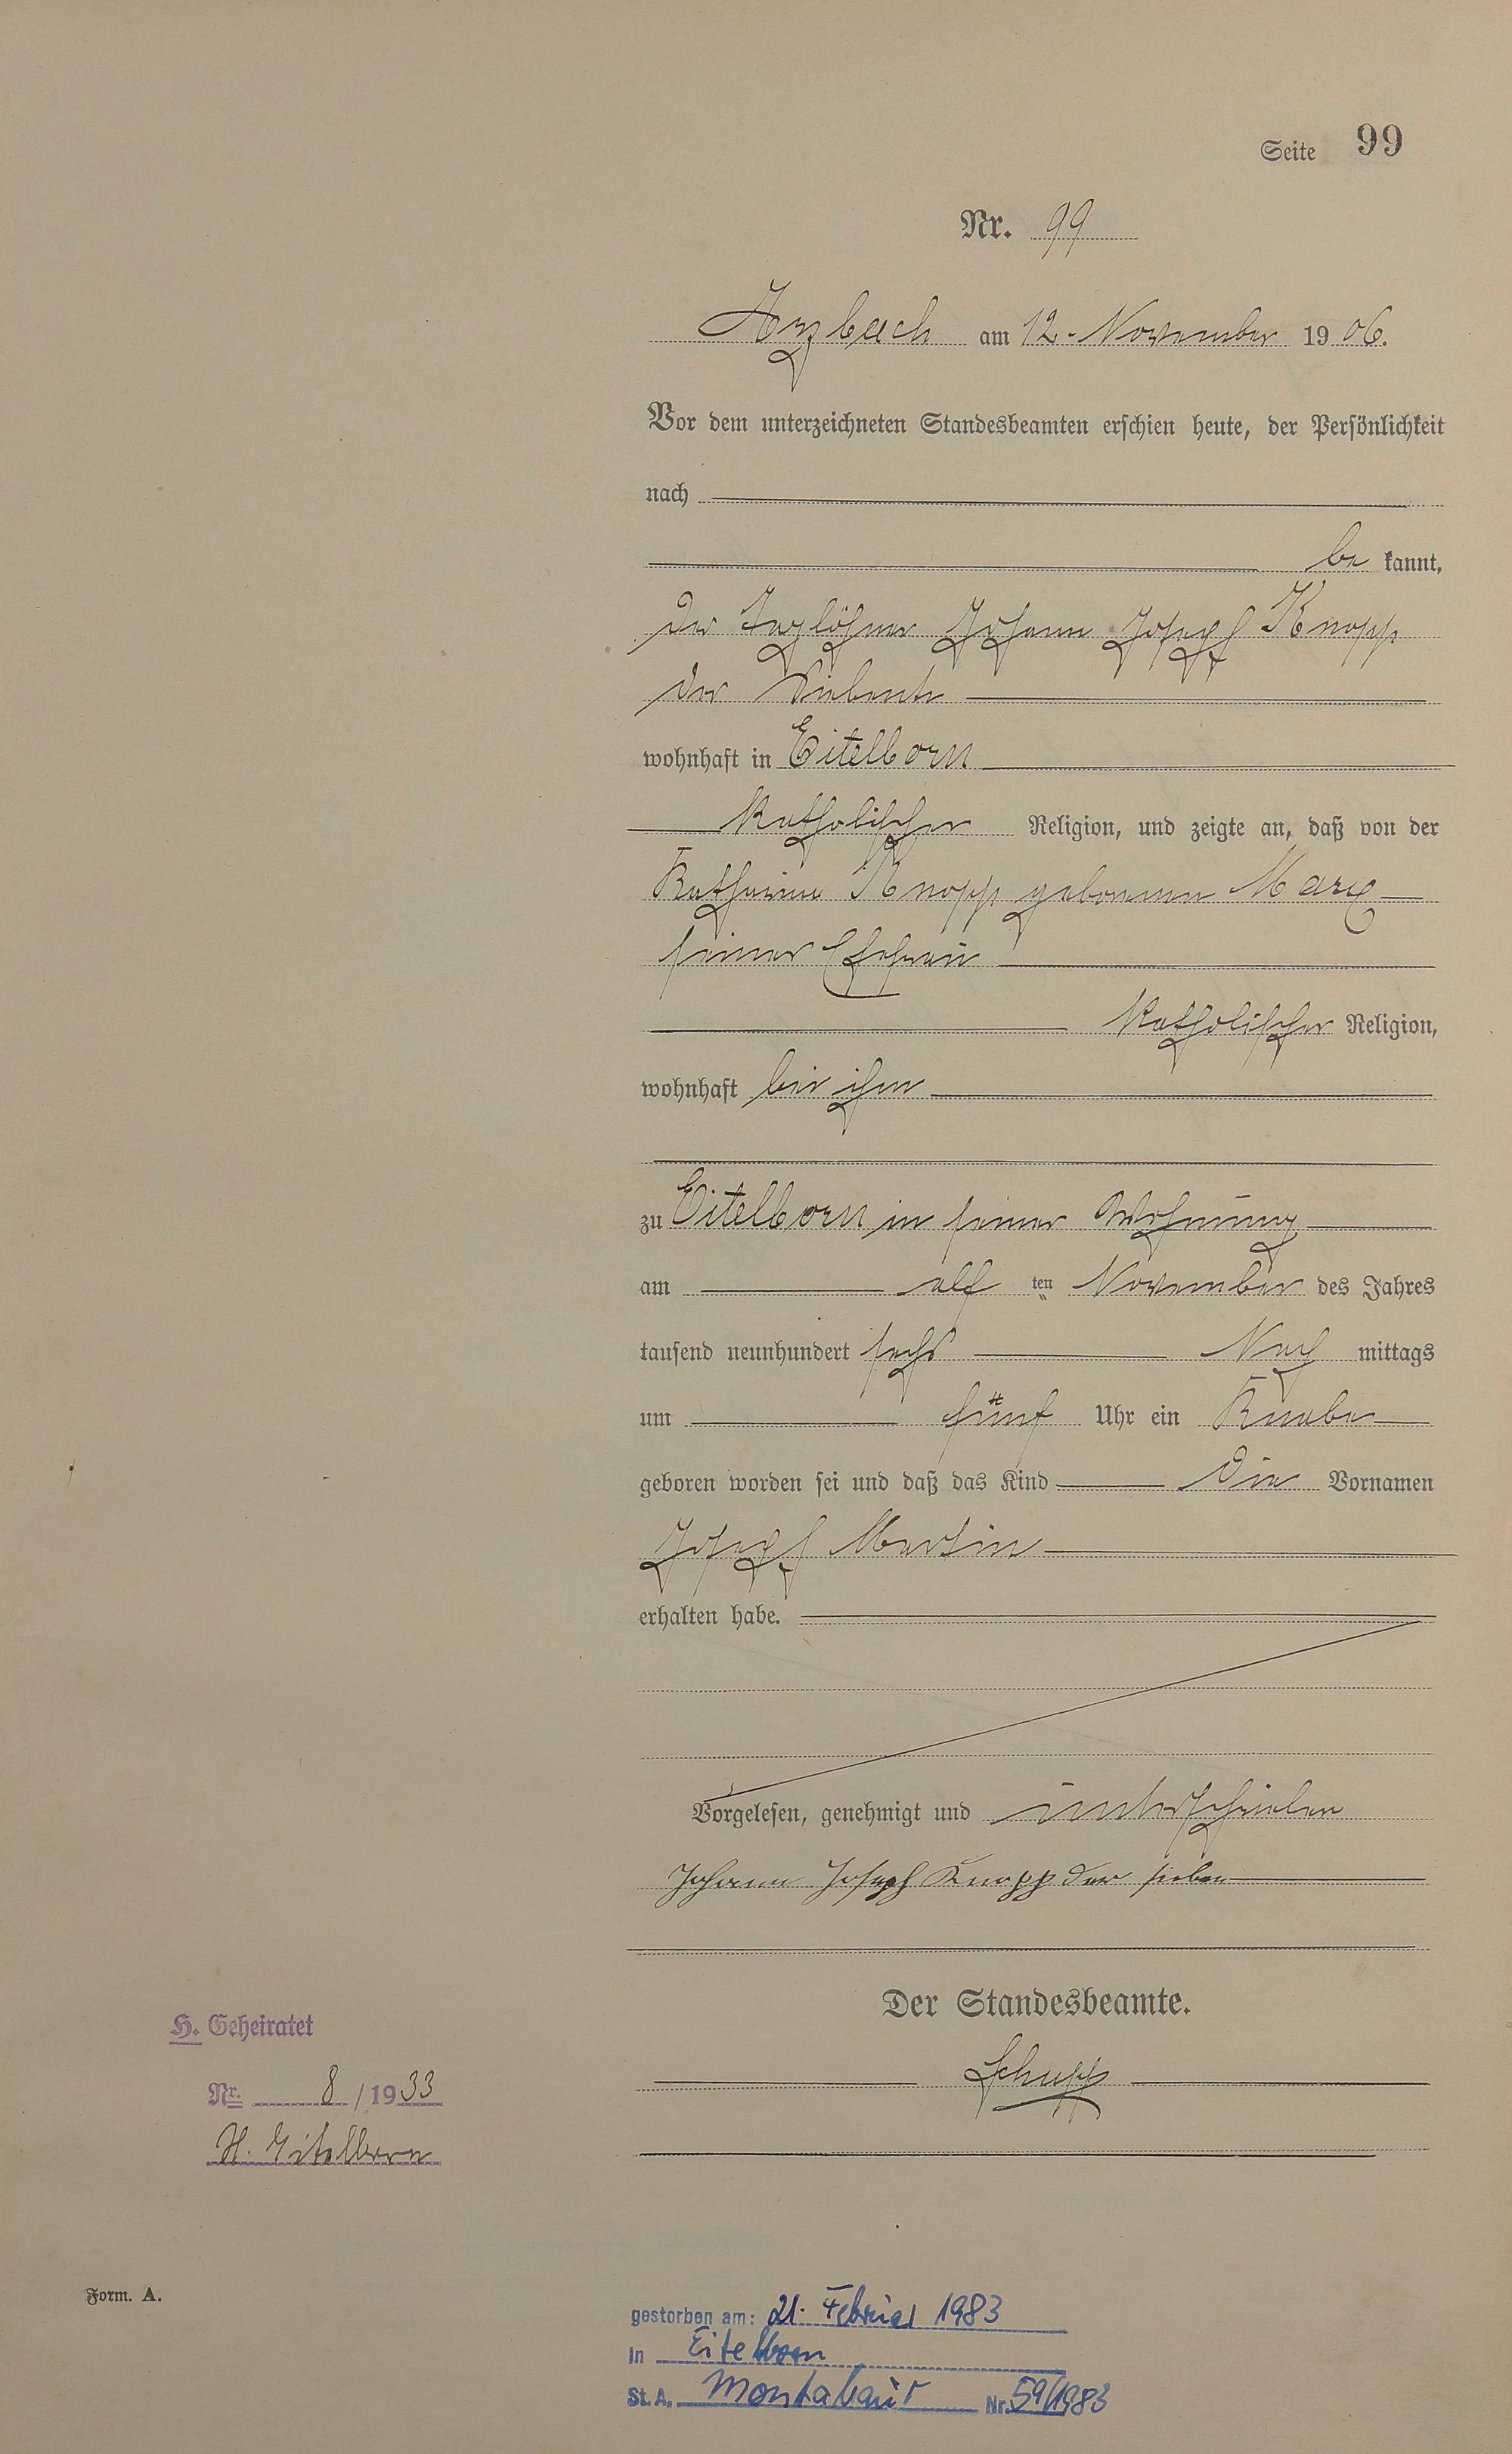 Seite 99
Nr. 99
Arzbach am 12. November 1906.
Vor dem unterzeichneten Standesbeamten erschien heute, der Persönlichkeit
nach
be kannt,
der Taglöhner Johann Joseph Knopp
der Siebente
wohnhaft in Eitelborn
katholischer Religion, und zeigte an, daß von der
Katharina Knopp geborenen Marx
seiner Ehefrau
katholischer Religion,
wohnhaft bei ihm
zu Eitelborn in seiner Wohnung
am elf ten November des Jahres
tausend neunhundert sechs Nach mittags
um fünf Uhr ein Knabe
geboren worden sei und daß das Kind die Vornamen
Joseph Martin
erhalten habe.
Vorgelesen, genehmigt und unterschrieben
Johann Joseph Knopp der sieben
Der Standesbeamte.
Schupp
H. Geheiratet
Nr. 8 / 1933
St. Eitelborn
Form. A.
gestorben am: 21. Februar 1983
in Eitelborn
St. A. Montabaur Nr. 59/1983